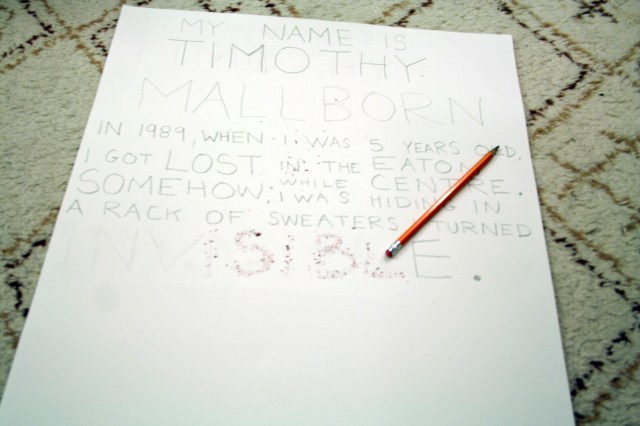 MY NAME IS
TIMOTHY.
MALLBORN
IN 1989, WHEN I WAS 5 YEARS OLD,
I GOT LOST IN THE EATON
SOMEHOW, WHILE CENTRE.
I WAS HIDING IN
A RACK OF SWEATERS TURNED
INVISIBLE.